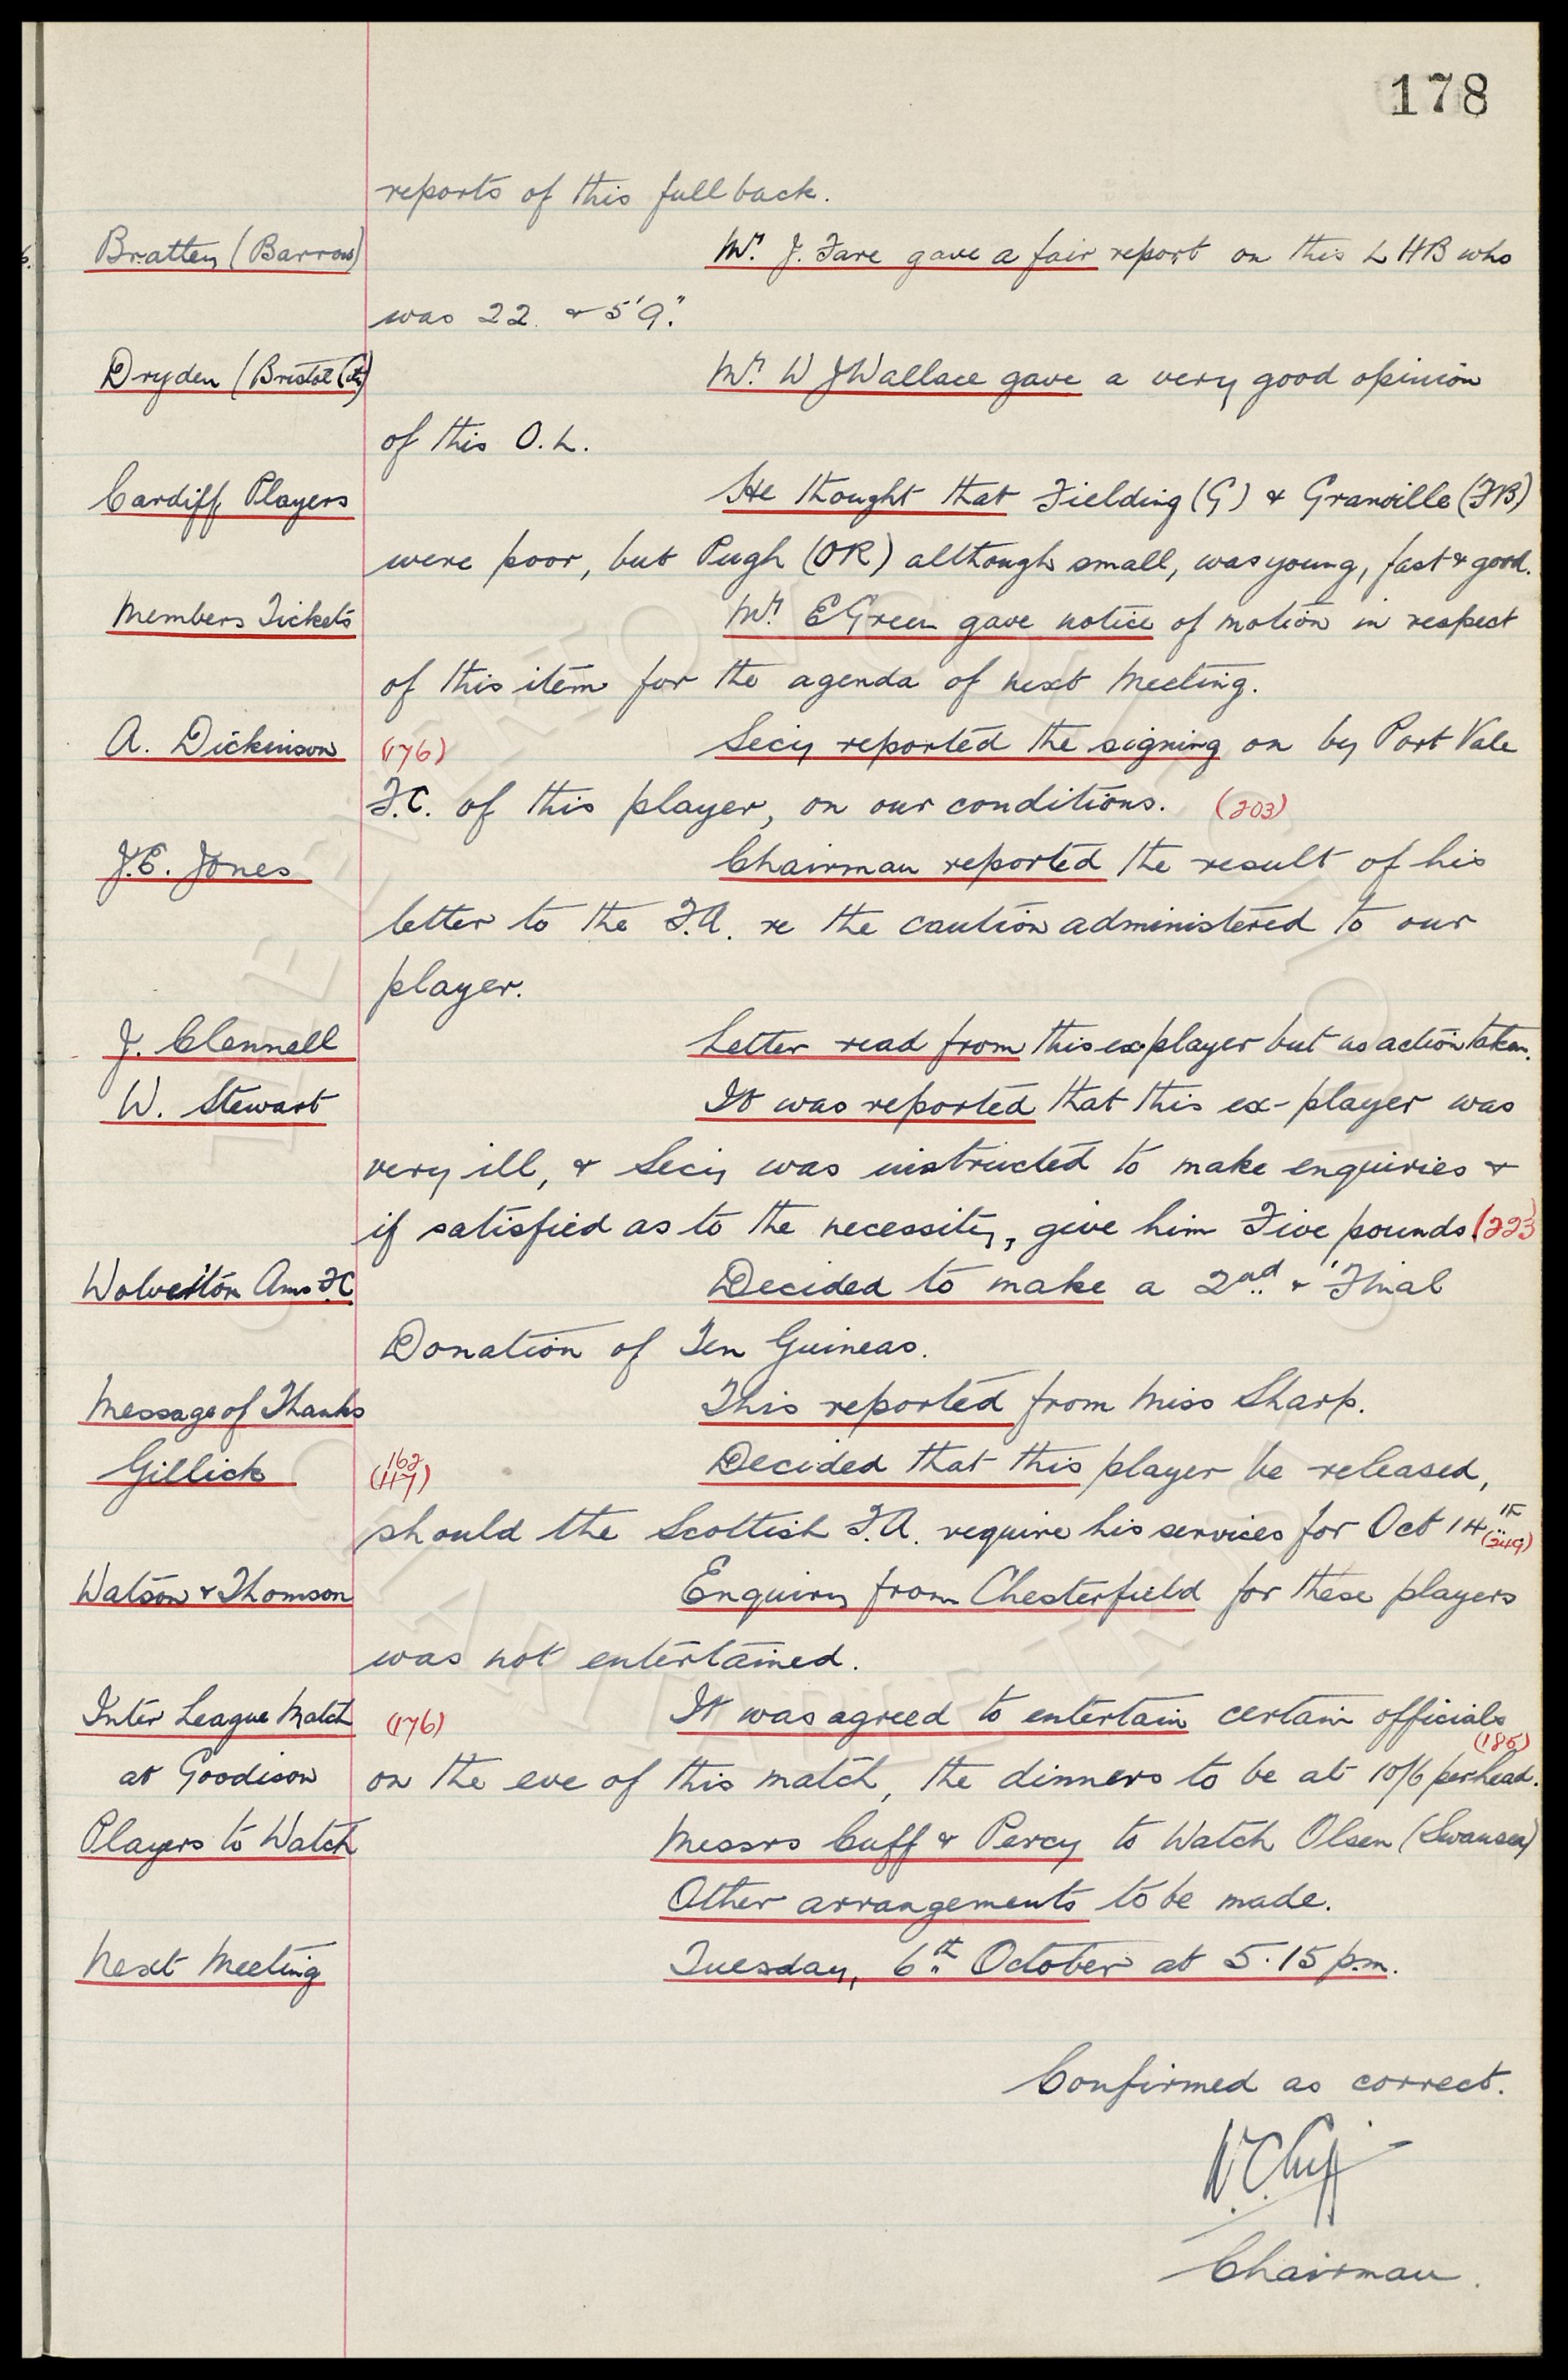 178
reports of this full back.
Bratten (Barrow) Mr. J. Fare gave a fair report on this L HB who
was 22. & 5'9".
Dryden (Bristol City) Mr. W J Wallace gave a very good opinion
of this O.L.
Cardiff Players He thought that Fielding (G) & Granville (FB)
were poor, but Pugh (OR) although small, was young, fast & good.
Members Tickets Mr. E Green gave notice of motion in respect
of this item for the agenda of next Meeting.
A. Dickinson (176) Secy reported the signing on by Port Vale
F.C. of this player, on our conditions. (203)
J.E. Jones Chairman reported the result of his
letter to the F.A. re the caution administered to our
player.
J. Clennell Letter read from this ex player but no action taken.
W. Stewart It was reported that this ex-player was
very ill, & Secy was instructed to make enquiries &
if satisfied as to the necessity, give him Five pounds. (223)
Wolverton Ams F.C Decided to make a 2nd & "Final
Donation of Ten Guineas.
Message of Thanks This reported from Miss Sharp.
Gillick (162 117) Decided that this player be released,
should the Scottish F.A. require his services for Oct 14th (249)
Watson & Thomson Enquiry from Chesterfield for these players
was not entertained.
Inter League Match (176) It was agreed to entertain certain officials
(185)
at Goodison on the eve of this match, the dinners to be at 10/6 per head.
Players to Watch Messrs Cuff & Percy to Watch Olsen (Swansea)
Other arrangements to be made.
Next Meeting Tuesday, 6th October at 5.15 p.m.
Confirmed as correct.
W.C. Cuff
Chairman.